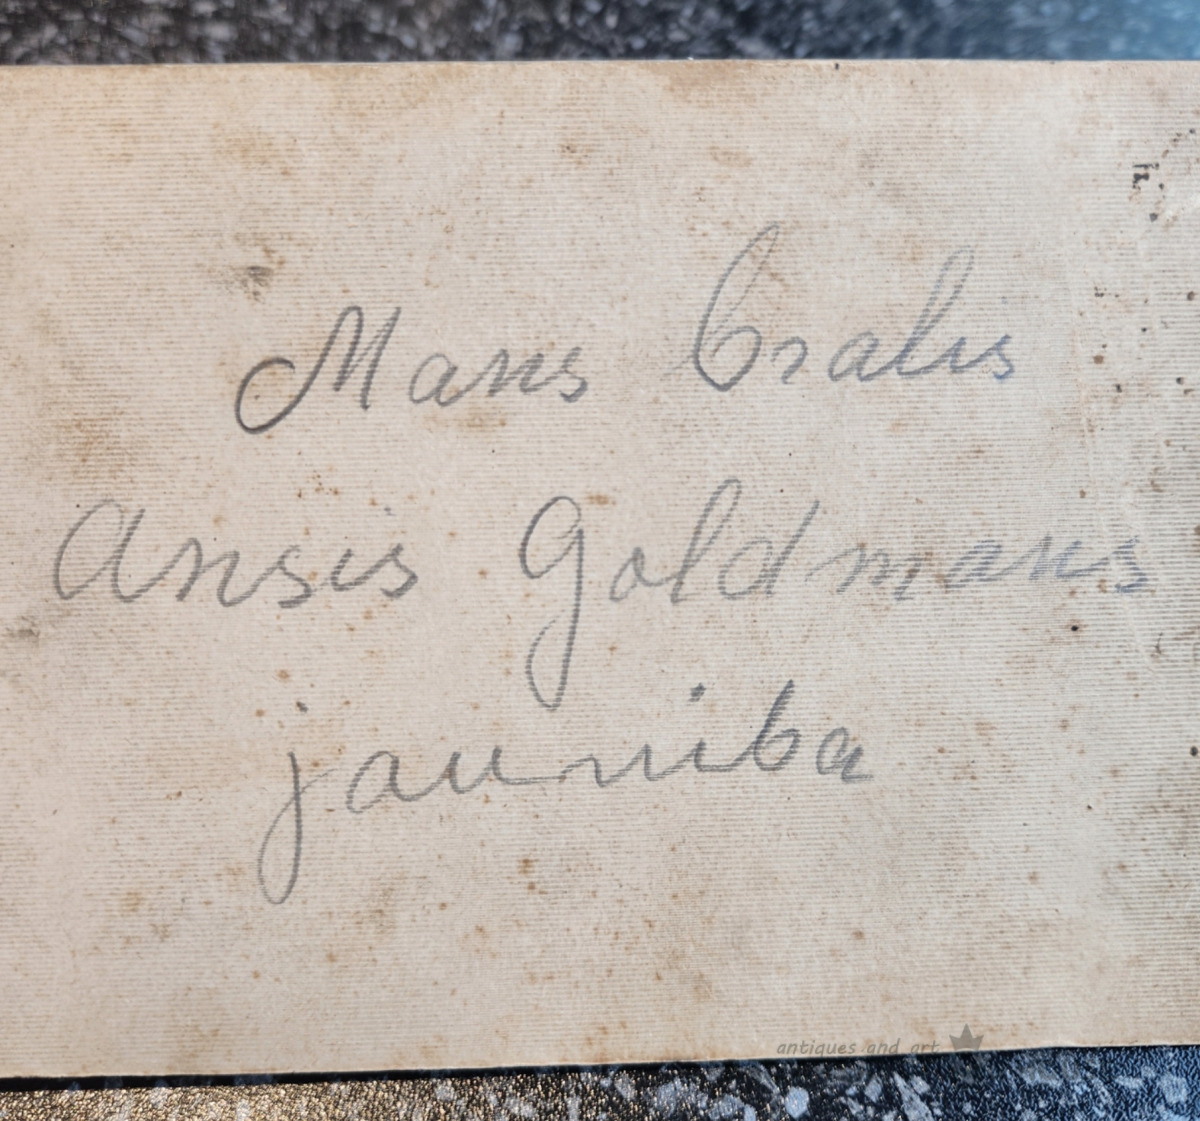 Mans Bralis
Ansis Goldmans
jauniba
antiques and art